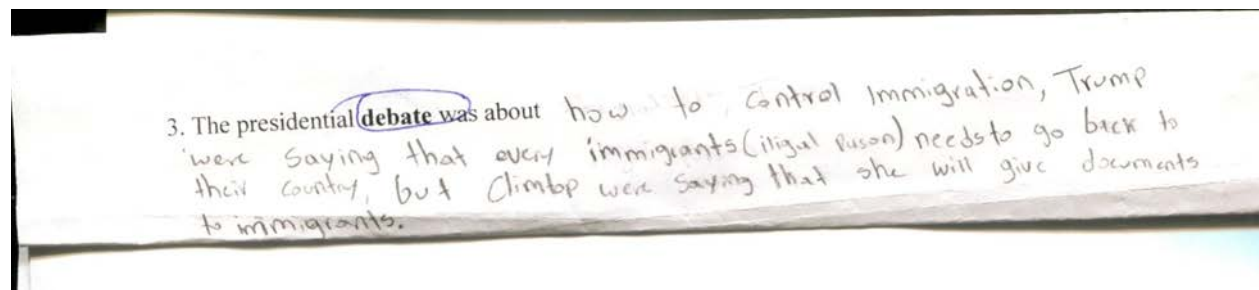 3. The presidential debate was about how to control Immigration, Trump
were saying that every immigrants (iligal Puson) needs to go back to
their country, but Climtop were saying that she will give documents
to immigrants.